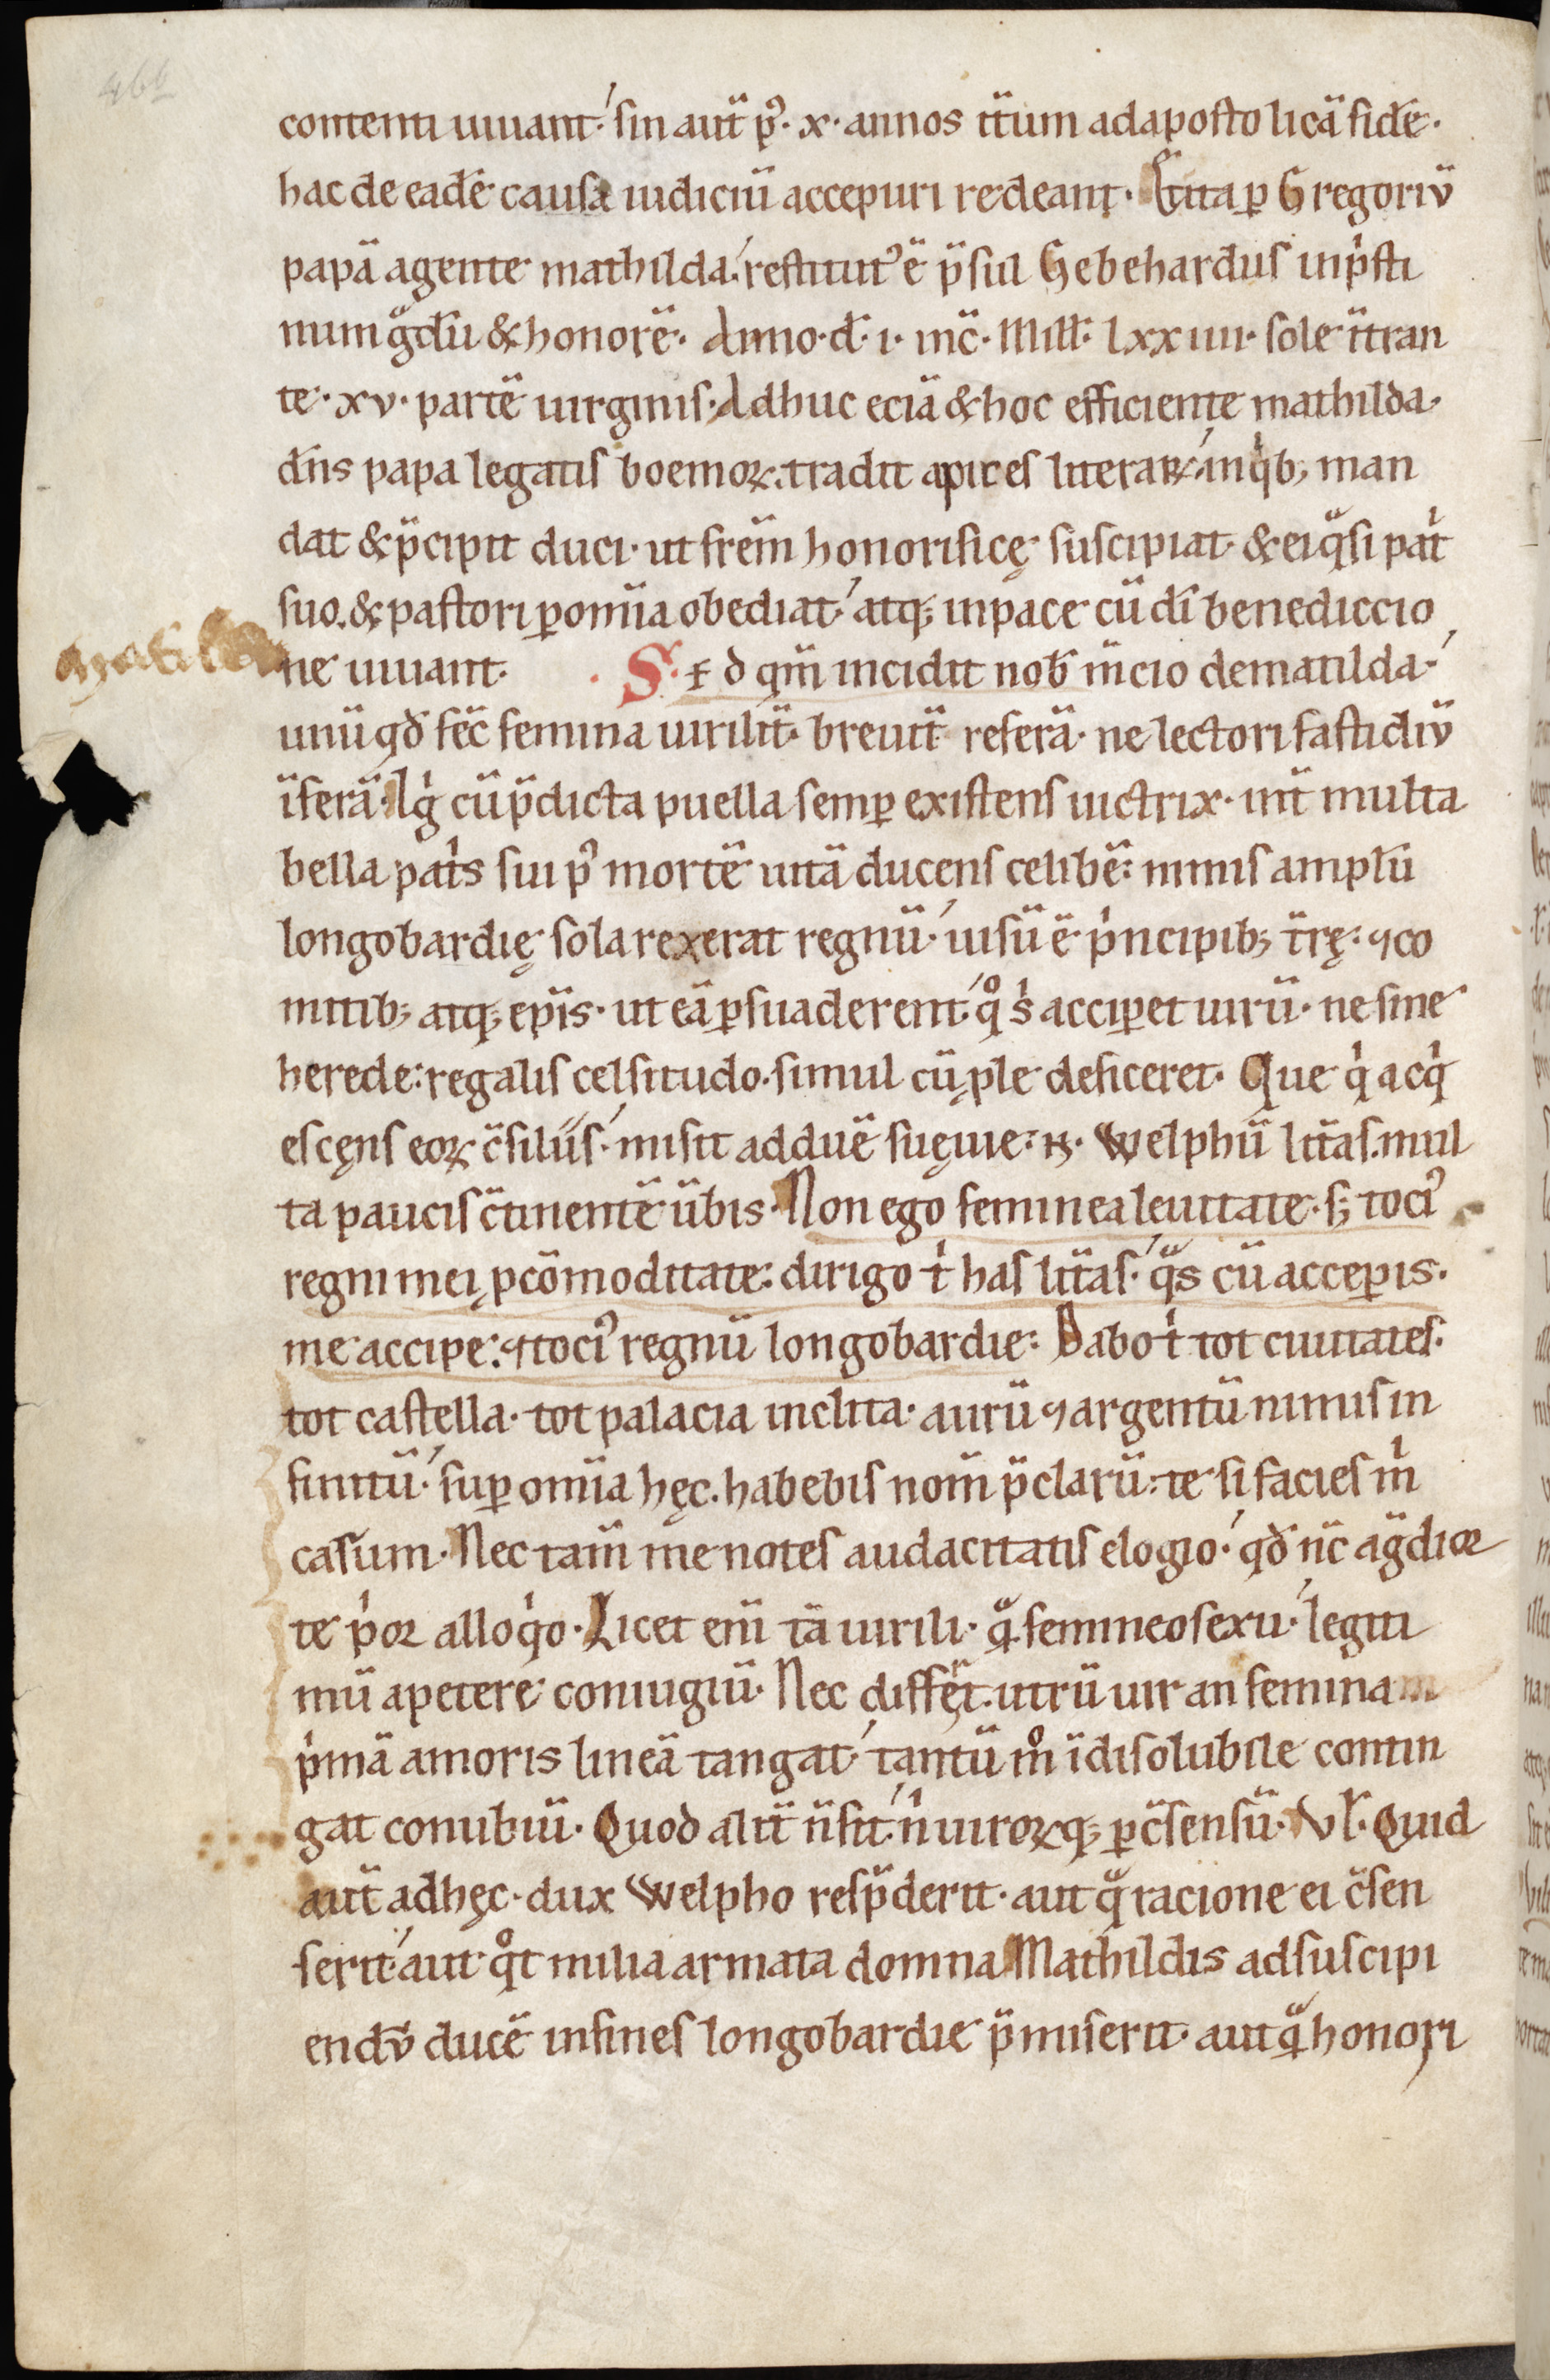 466
contenti uiuant. sin aut̄ p᷒. x. annos it̄um ad apostolicā fidē.
hac de eadē causa iudiciū accepturi redeant. Et ita ꝑ Gregoriū
papā agente mathilda. restitut᷒ ē p̄sul Gebehardus in pͥsti
num gͣdū & honorē. Anno. d. i. inc̄. Mill̄. lxxiiii. sole it̄ran
te. xv. partē uirginis. Adhuc eciā & hoc efficiente mathilda.
dn̄s papa legatis boemoꝝ. tradit apices literaꝝ. in qͥb; man
dat & p̄cipit duci. ut fr̄em honorificę suscipiat. & ei qͣsi patͥ
suo. & pastori ꝑ om̄ia obediat. atq; in pace cū dī benediccio
matilda
ne uiuant. Sed qm̄ incidit nob̄ m̄cio de matilda.
unū qđ fec̄ femina uirilit̄. breuit̄ referā. ne lectori fastidiū
īferā. Igͥ cū p̄dicta puella semꝑ existens uictrix. int̄ multa
bella patͥs sui p᷒ mortē uitā ducens celibē. nimis amplū
longobardię sola rexerat regnū. uisū ē pͥncipib; t̄rę. ⁊ co
mitib; atq; ep̄is. ut eā ꝑsuaderent. qͦ sͥ acciꝑet uirū. ne sine
herede. regalis celsitudo. simul cū ꝓle deficeret. Que qͥ acqͥ
escens eoꝝ c̄siliis. misit ad ducē suęuie. N. Welphū litt̄as. mul
ta paucis c̄tinentē ūbis. Non ego feminea leuitate. s; toci᷒
regni mei ꝓ cōmoditate. dirigo tͥ has litt̄as. qͣs cū acceꝑis.
me accipe. ⁊ toci᷒ regnū longobardie. Dabo tͥ tot ciuitates.
tot castella. tot palacia inclita. aurū ⁊ argentū nimis in
finitū. suꝑ om̄ia hęc. habebis nom̄ p̄clarū. te si facies mͥ
casum. Nec tam̄ me notes audacitatis elogio. qđ nc̄ agͣdior
te pͥor alloqͥo. Licet eni̅ tā uirili. qͣ femineo sexu. legiti
mū apetere coniugiū. Nec differt. utrū uir an feminam
pͥmā amoris lineā tangat. tantū mͦ īdisolubile contin
gat conubiū. Quod alit̄ n̄ fit. nͥ uiroꝝq; ꝑ c̄sensū. Vl̄. Quid
aut̄ ad hęc. dux Welpho resp̄derit. aut qͣ racione ei c̄sen
serit. aut qͦt milia armata domna Mathildis ad suscipi
endū ducē in fines longobardie p̄miserit. aut qͣ honori